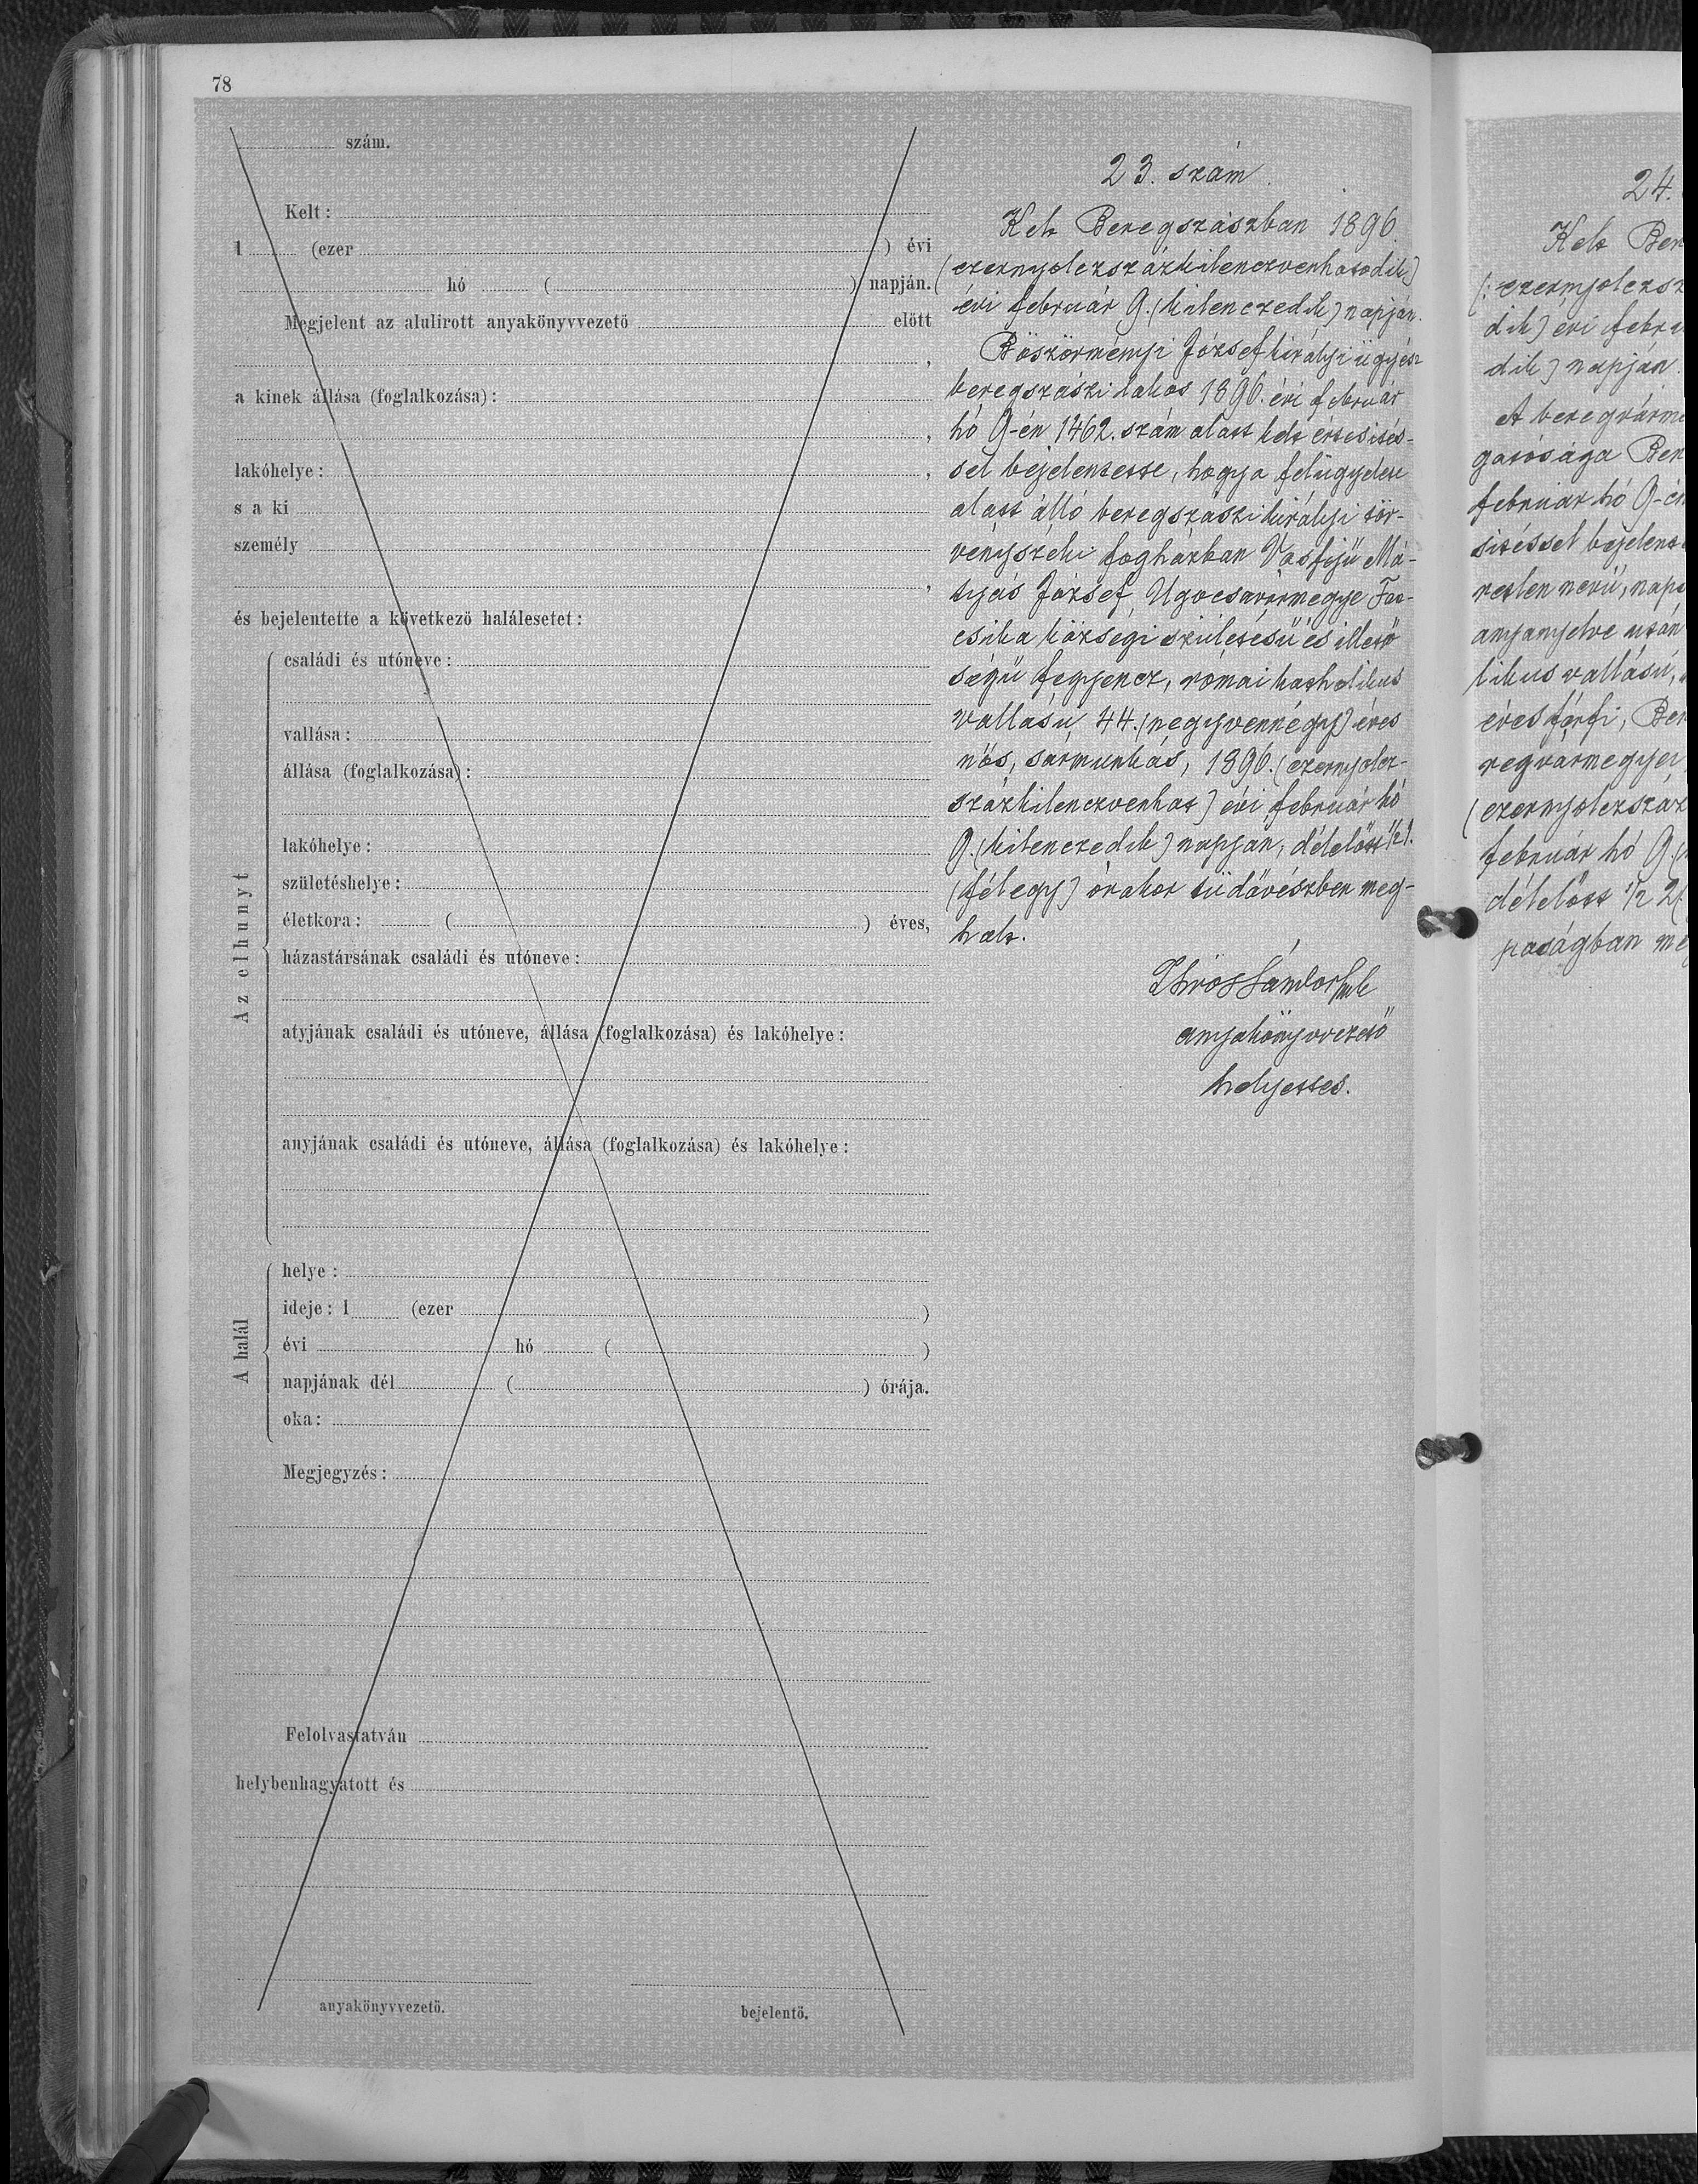 78
szám.
Kelt:
1 (ezer ) évi
hó ( ) napján.
Megjelent az alulirott anyakönyvvezető előtt
,
a kinek állása (foglalkozása):
,
lakóhelye: ,
s a ki
személy
,
és bejelentette a következő halálesetet:
Az elhunyt
családi és utóneve:
vallása:
állása (foglalkozása):
lakóhelye:
születéshelye:
életkora: ( ) éves,
házastársának családi és utóneve:
atyjának családi és utóneve, állása (foglalkozása) és lakóhelye:
anyjának családi és utóneve, állása (foglalkozása) és lakóhelye:
A halál
helye:
ideje: 1 (ezer )
évi hó ( )
napjának dél ( ) órája.
oka:
Megjegyzés:
Felolvastatván
helybenhagyatott és
anyakönyvvezető.
bejelentő.
23. szám.
Kelt Beregszászban 1896
(ezernyolczszázkilenczvenhatodik)
évi február 9. (kilenczedik) napján.
Böszörményi József királyi ügyész
beregszászi lakos 1896. évi február
hó 9-én 1462. szám alatt kelt értesítés-
sel bejelentette, hogy a felügyelete
alatt álló beregszászi királyi tör-
vényszéki fogházban Vasfejü Má-
tyás József, Ugocsavármegye
községi születésü és illető
ségü fegyencz, római katholikus
vallásu, 44. (negyvennégy) éves
nős, 1896. (ezernyolcz-
százkilenczvenhat) évi február hó
9. (kilenczedik) napján, délelőtt 1/2 1.
(fél egy) órakor tüdővészben meg-
halt.
Sándor
anyakönyvvezető
helyettes.
24.
Kelt Ber
(: ezernyolczsz
dik) évi febru
dik) napján.
A beregvárme
gatósága Ber
február hó 9-én
sitéssel bejelent
retlen nevü, napsz
anyanyelve után
likus vallásu,
éves férfi, Ber
regvármegyei
(ezernyolczszáz
február hó 9.
délelőtt 1/2 2(